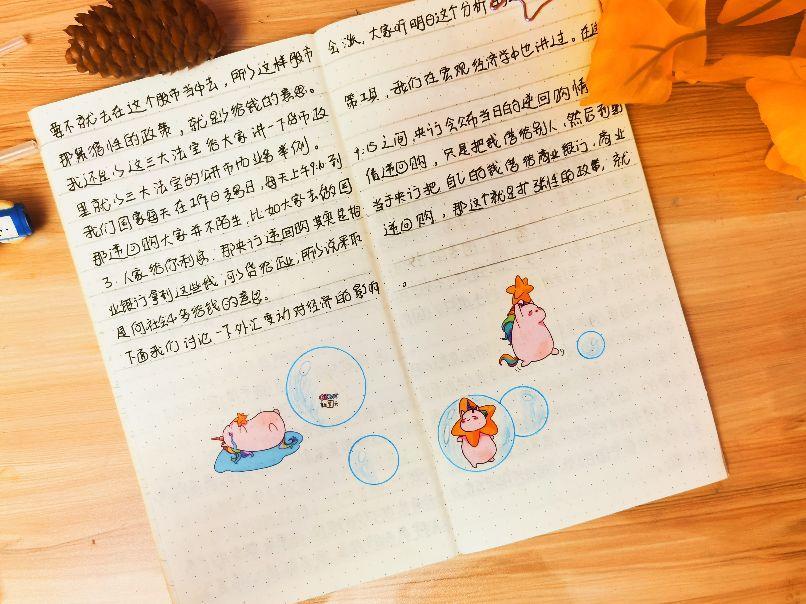 要不就去在这个股市当中去，所以这样股市会涨，大家听明白这个分析
那紧缩性的政策，就是少给钱的意思。
我还是以这三大法宝给大家讲一下货币政策工具，我们在宏观经济学中也讲过。在这
里就以三大法宝的公开市场业务举例。
我们国家每天在工作日交易日，每天上午9:10到9:15之间，央行会公布当日的逆回购情
那逆回购大家并不陌生，比如大家去做国债逆回购，只是把钱借给别人，然后到期
了，人家给你利息，那央行逆回购其实是相当于央行把自己的钱借给商业银行，商业
业银行拿到这些钱，可以贷给企业，所以说采取逆回购，那这个就是扩张性的政策，就
是向社会中多给钱的意思。
下面我们讨论一下外汇变动对经济的影响。